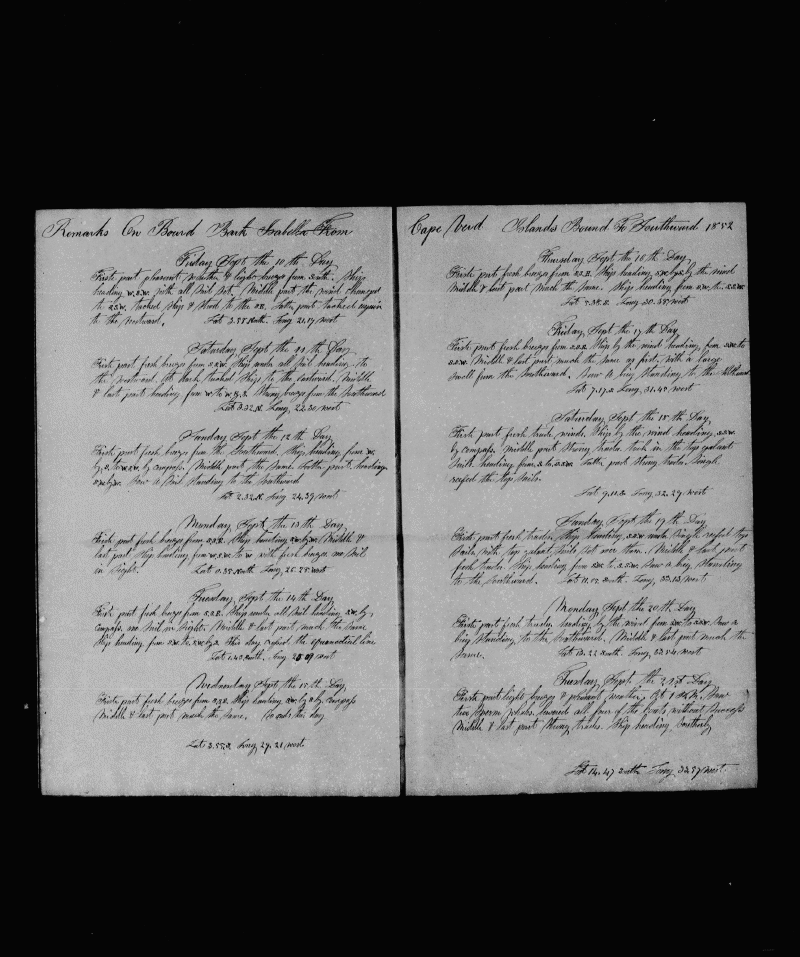 Remarks On Board Bark Isabella From
Friday Sept the 10 th Day
Firste part pleasent weather & light breeze from South. Ship
heading W.S.W. with all sail sett. Middle part the wind changed
to S.S.W. tacked Ship & Stood to the S.E. Latter part tacked again
to the westward. Lat 3.55 North. Long 21.17 West
Saturday Sept the 11 th Day
Firste part fresh breeze from S.S.W. Ship under all sail heading to
the Westward. At dark tacked Ship to the eastward. Middle
& last part heading from W to W.by.S. Strong breeze from the Southward
Lat 3.32 N. Long, 22.30 West
Sunday Sept the 12 th Day
Firste part fresh breeze from the Southward, Ship, heading from W.
by.S. to W.S.W. by compass. Middle part the Same. Latter part heading
S.W.by.W. Saw a Sail Standing to the Southward
Lat 2.32 N. Long 24.39 West
Monday Sept, the 13 th Day,
Firste part fresh breeze from S.S.E. Ship heading S.W.by.W. Middle &
last part Ship heading from W.S.W. to W with fresh breeze no Sail
in Sight. Lat 0.35 North Long 26.25 West
Tuesday Sept, the 14 th Day
Firste part fresh breeze from S.S.E. Ship under all Sail heading S.W. by,
compass. no Sail in Sight. Middle & last part much the Same
Ship heading from S.W. to S.W.by.S. this day crosed the equanoctial line
Lat 1.40 South. Long 28 09 West
Wednesday Sept the 15 th Day
Firste part fresh breeze from S.S.E. Ship heading S.W. by S by compass
Middle & last part much the Same. So ends this day
Lat 3.55.S. Long 29.21 West.
Cape Verd Islands Bound To Southward 1852
Thursday Sept the 16 th Day
Firste part fresh breeze from S.S.E. Ship heading S.W.by.S by the wind
Middle & last part Much the Same. Ship heading from S.W. to S.S.W.
Long 30.38 West
Friday, Sept the 17 th Day
Firste part fresh breeze from S.S.E. Ship by the wind heading from S.W. to
S.S.W. Middle & last part much the Same as first, with a large
Swell from the Southward. Saw a brig Standing to the Northward
Lat 7.17.S Long 31.40 West
Saturday Sept the 18 th Day,
Firste part fresh trade winds. Ship by the wind heading S.S.W.
by compass. Middle part Strong trades. Took in the top galant
Sails heading from S. to S.S.W. Latter part Strong trades. Single
reefed the top Sails.
Lat 9.11.S. Long 32.29 West
Sunday, Sept the 19 th Day
Firste part fresh trades, Ship Standing S.S.W. under Single reefed top
Sails with top galant Sails set over them. Middle & last part
fresh trades. Ship heading from S.W. to S.S.W. Saw a brig Standing
to the Southward. Lat 11.12 South. Long, 33.13 West
Monday Sept the 20 th Day
Firste part fresh trades, heading by the wind from S.W. to S.S.W. Saw a
brig Standing to the Southward. Middle & last part much the
Same. Lat 13.22 South. Long 33.54 West
Tuesday Sept, the 21st Day
Firste part light breeze & pleasant weather, At 1 P.M. Saw
two Sperm whales, lowered all four of the boats, without Success
Middle & last part Strong trades. Ship heading Southerly
Lat 14.47 South Long 33.57 West.